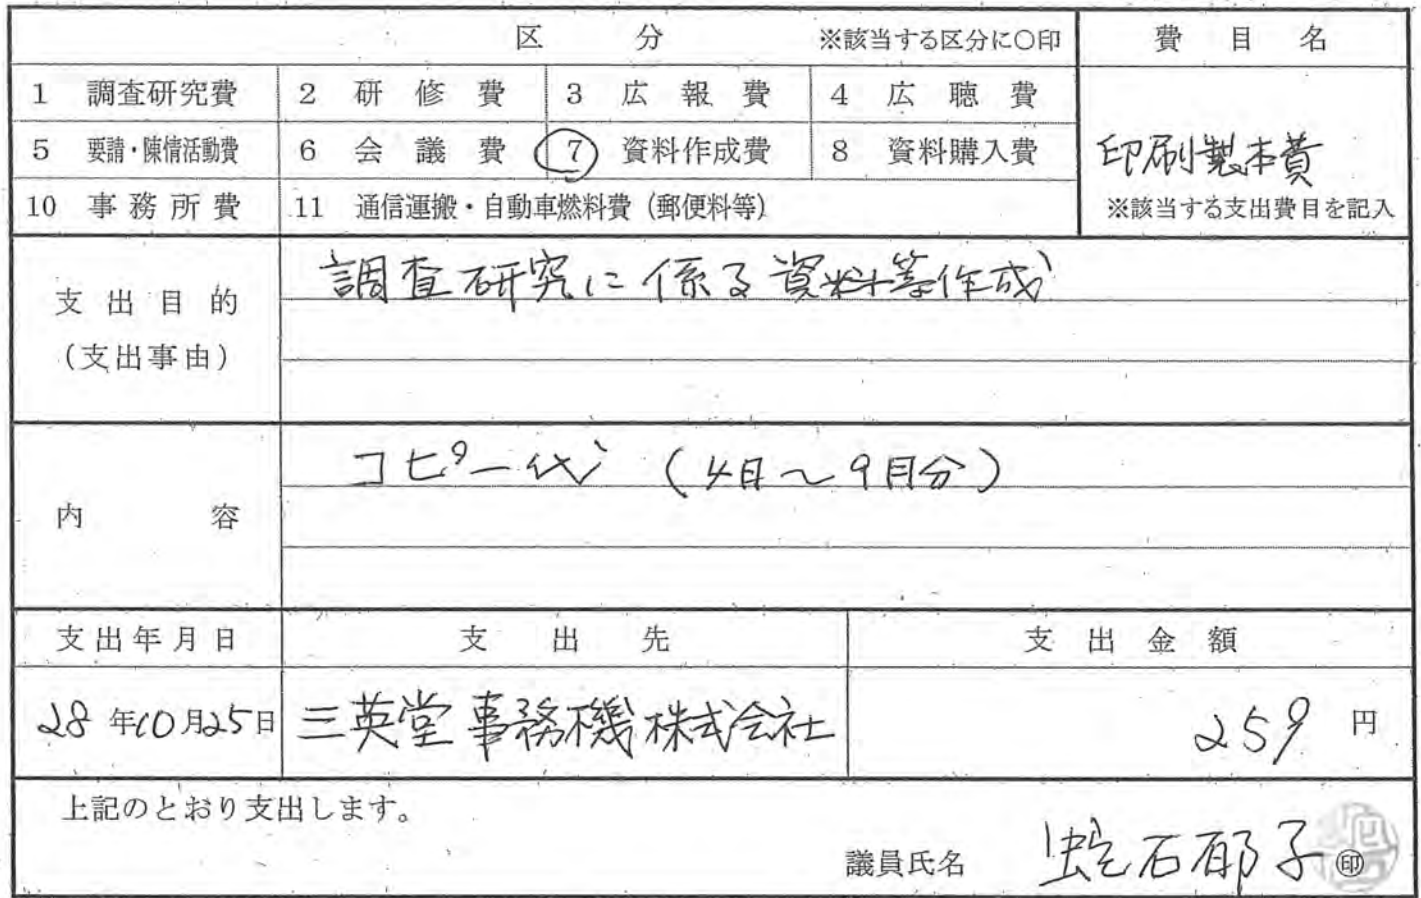 区 分 ※該当する区分に○印 費 目 名
1 調査研究費 2 研 修 費 3 広 報 費 4 広 聴 費
5 要請・陳情活動費 6 会 議 費 7 資料作成費 8 資料購入費
印刷製本費
10 事 務 所 費 11 通信運搬・自動車燃料費（郵便料等） ※該当する支出費目を記入
支 出 目 的
（支出事由）
調査研究に係る資料等作成
内 容
コピー代 (4月～9月分)
支出年月日 支 出 先 支 出 金 額
28年10月25日 三英堂事務機株式会社 259 円
上記のとおり支出します。
議員氏名 蛇石郁子 ㊞